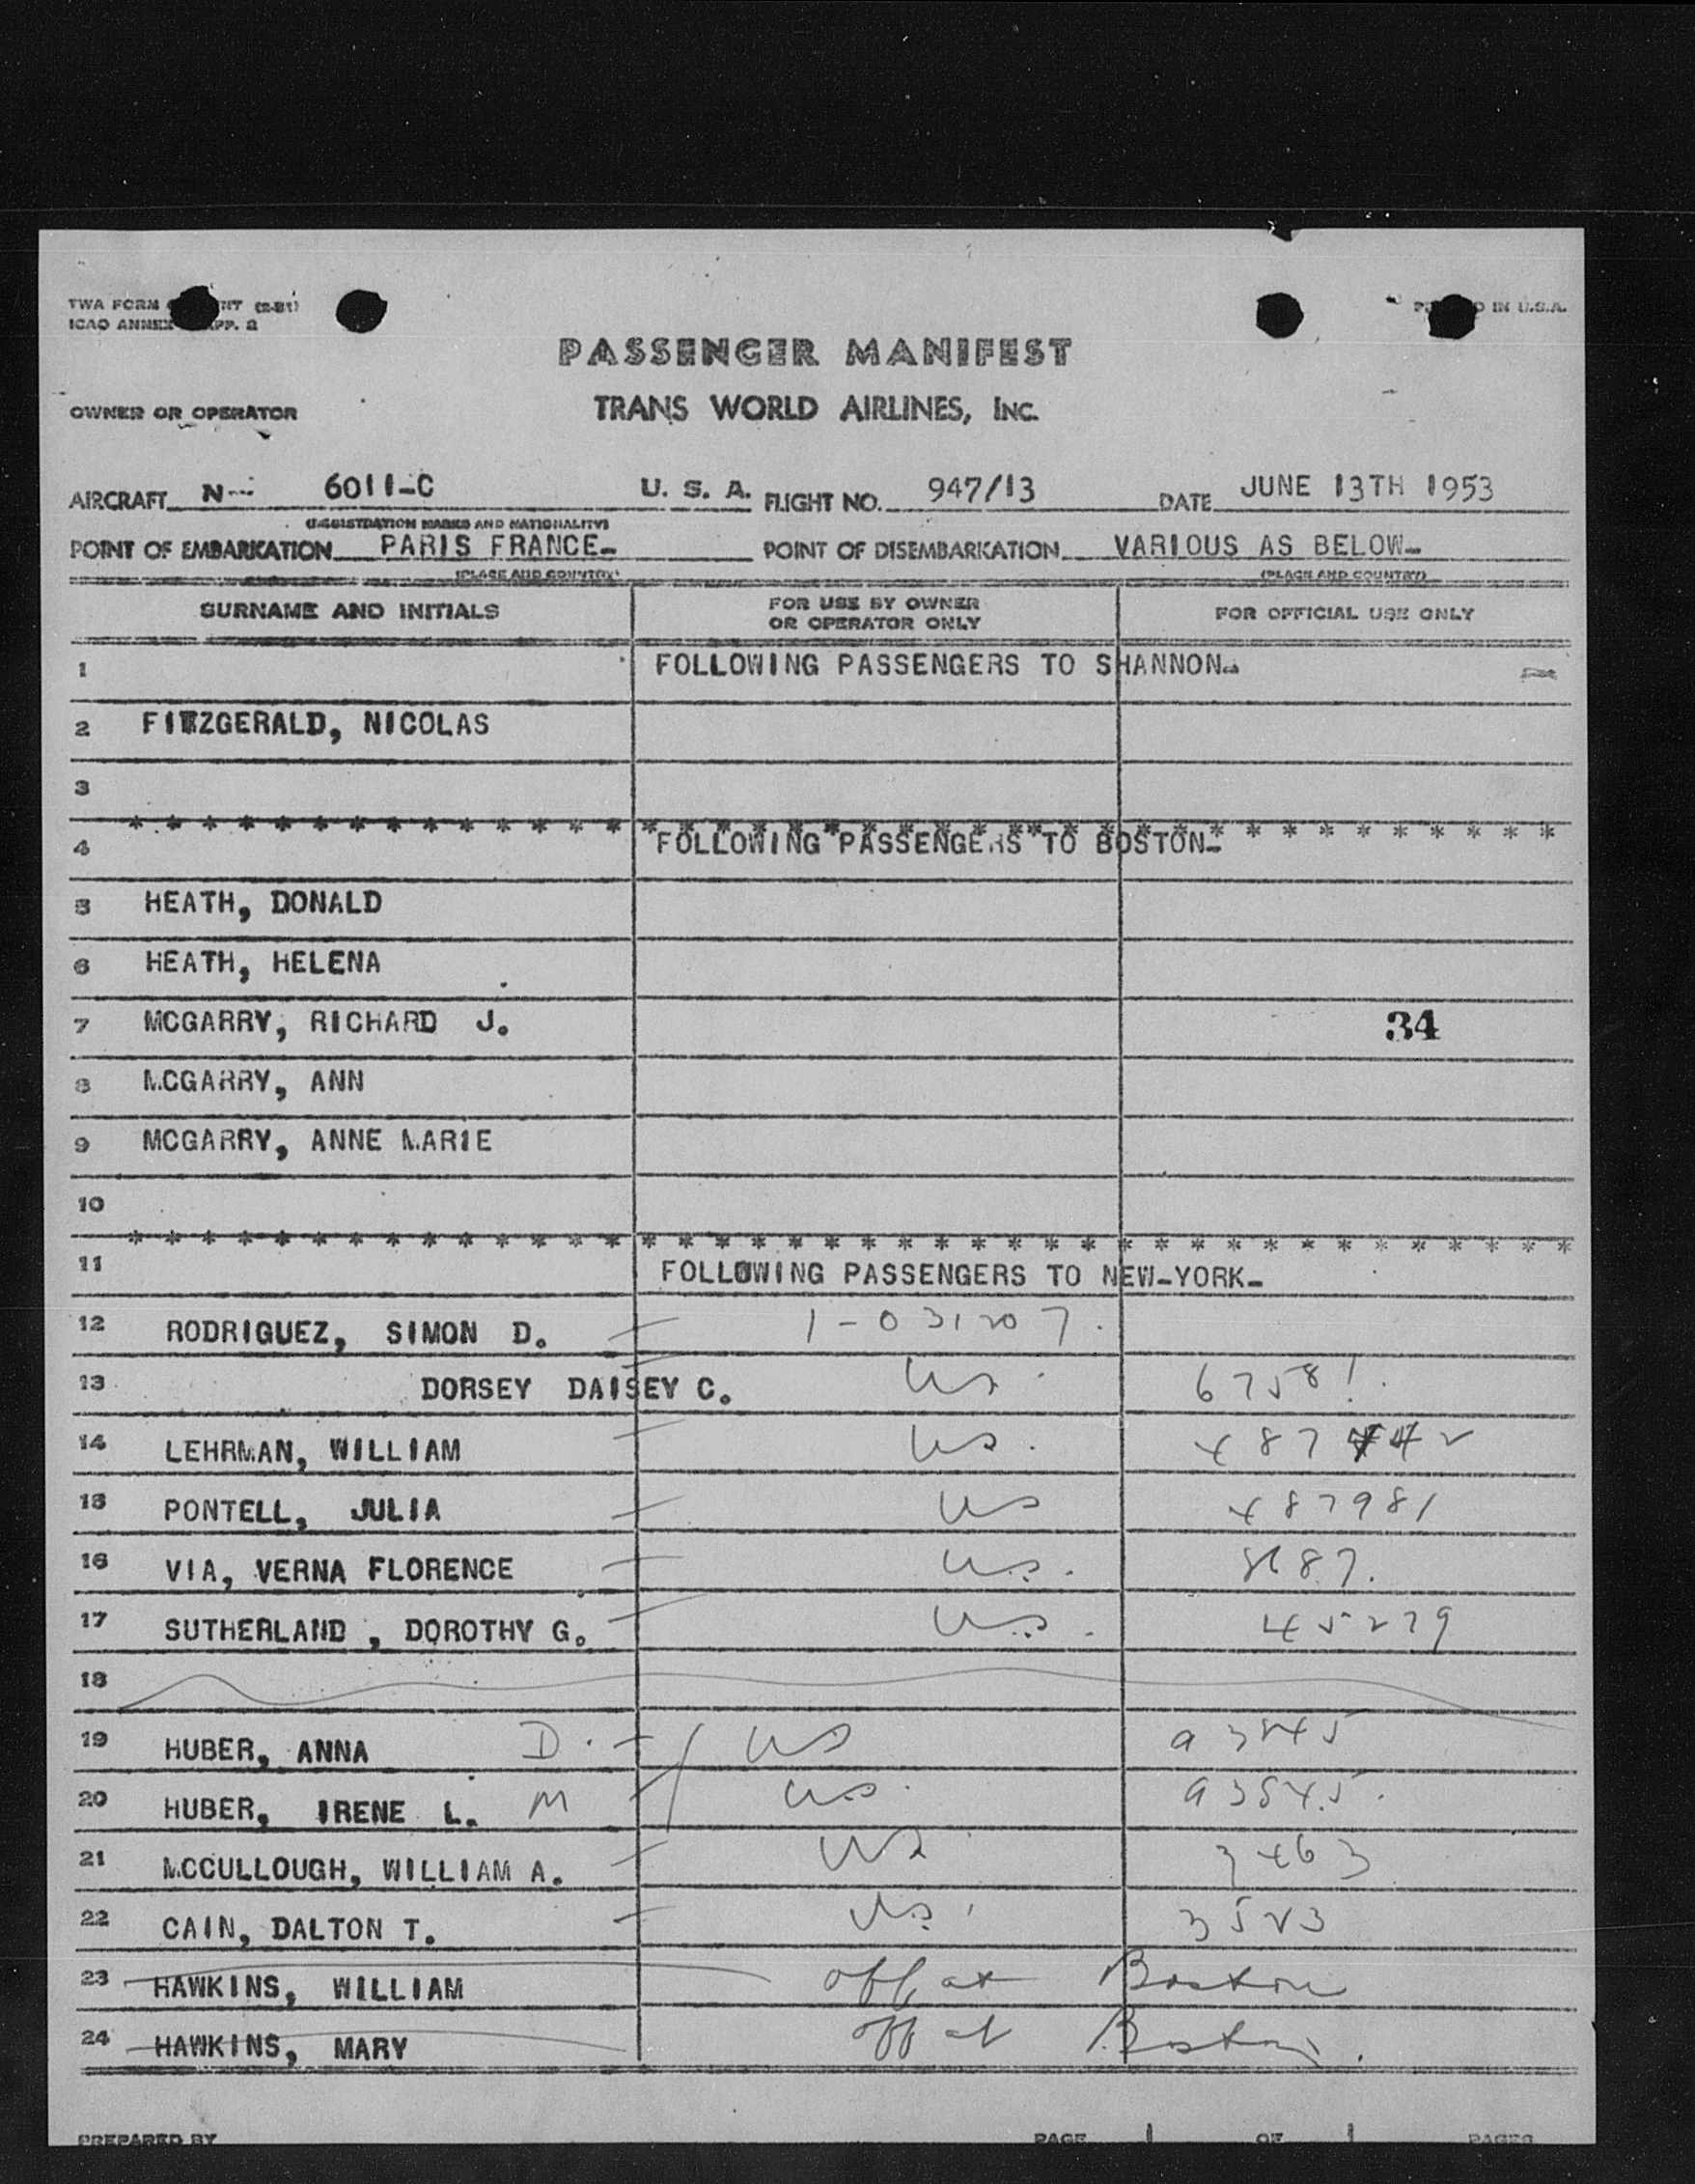 TWA FORM NT (2-51)
ICAO ANNEX APP. 2
IN U.S.A.
PASSENGER MANIFEST
OWNER OR OPERATOR TRANS WORLD AIRLINES, INC.
AIRCRAFT N-- 6011-C U. S. A. FLIGHT NO. 947/13 DATE JUNE 13TH 1953
(REGISTRATION MARKS AND NATIONALITY)
POINT OF EMBARKATION PARIS FRANCE- POINT OF DISEMBARKATION VARIOUS AS BELOW-
(PLACE AND COUNTRY) (PLACE AND COUNTRY)
SURNAME AND INITIALS FOR USE BY OWNER OR OPERATOR ONLY FOR OFFICIAL USE ONLY
1 FOLLOWING PASSENGERS TO SHANNON-
2 FITZGERALD, NICOLAS
3
4 FOLLOWING PASSENGERS TO BOSTON-
5 HEATH, DONALD
6 HEATH, HELENA
7 MCGARRY, RICHARD J. 34
8 MCGARRY, ANN
9 MCGARRY, ANNE MARIE
10
11 FOLLOWING PASSENGERS TO NEW-YORK-
12 RODRIGUEZ, SIMON D. 1-031207.
13 DORSEY DAISEY C. US. 67581.
14 LEHRMAN, WILLIAM US.
15 PONTELL, JULIA US 487981
16 VIA, VERNA FLORENCE US.
17 SUTHERLAND , DOROTHY G. US. 45279
18
19 HUBER, ANNA D. US
20 HUBER, IRENE L. M US.
21 MCCULLOUGH, WILLIAM A. US 3463
22 CAIN, DALTON T. US. 3523
23 HAWKINS, WILLIAM off at Boston
24 HAWKINS, MARY off at Boston.
PREPARED BY PAGE 1 OF 1 PAGES